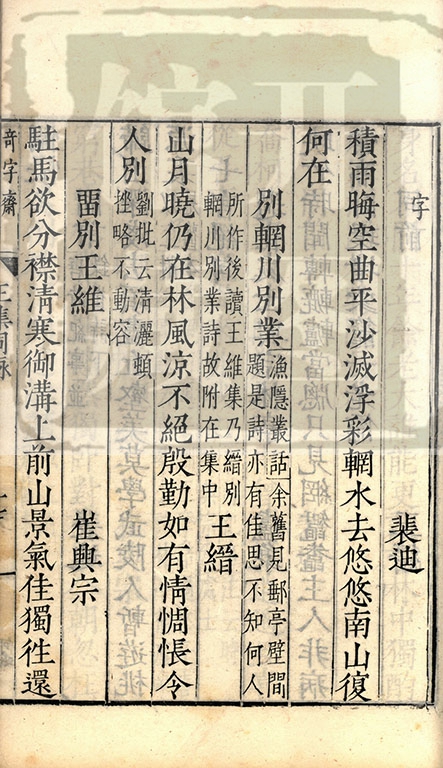 字　裴迪
積雨晦空曲平沙滅浮彩輞水去悠悠南山復
何在
別輞川別業漁隱叢話余舊見郵亭壁間
題是詩亦有佳思不知何人
所作後讀王維集乃縉別
輞川別業詩故附在集中　王縉
山月曉仍在林風涼不絕殷勤如有情惆悵令
人別劉批云清灑頓
挫略不動容
畱別王維　崔興宗
駐馬欲分襟清寒御溝上前山景氣佳獨徃還
奇字齋